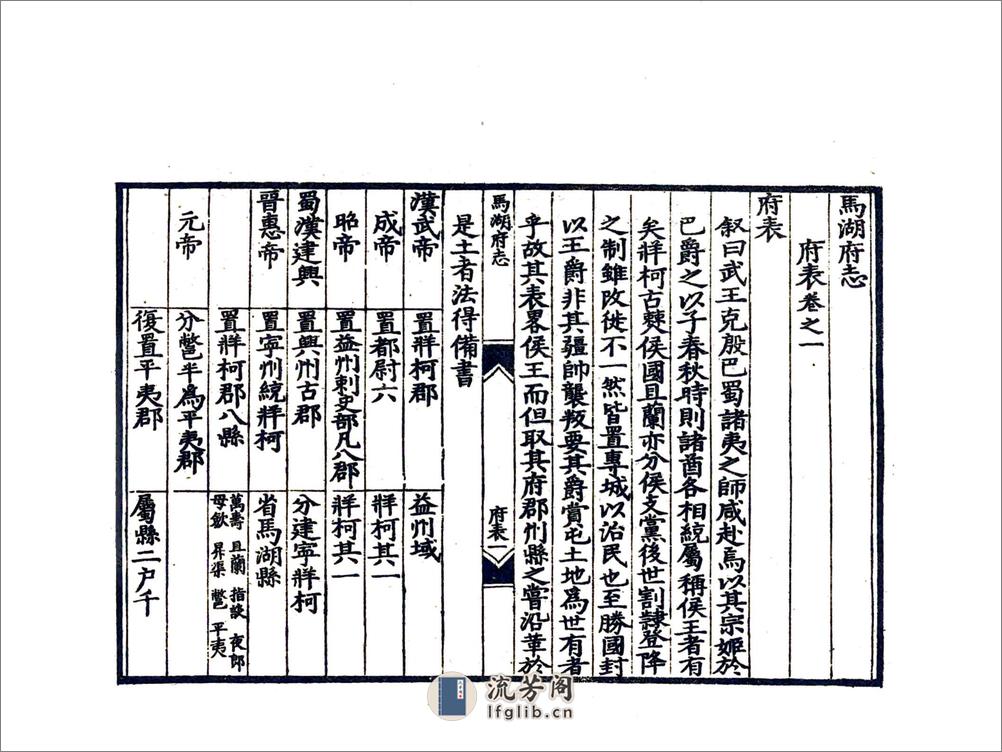 馬湖府志
府表卷之一
府表
叙曰武王克殷巴蜀諸夷之師咸赴焉以其宗姬於
巴爵之以子春秋時則諸酋各相統屬稱侯王者有
矣牂柯古僰侯國且蘭亦分侯支黨後世割隷登降
之制雖改徙不一然皆置專城以治民也至勝國封
以王爵非其疆帥襲叛要其爵賞屯土地為世有者
乎故其表畧侯王而但取其府郡州縣之嘗沿革於
馬湖府志 府表一
是土者法得備書
漢武帝 置牂柯郡 益州域
成帝 置都尉六 牂柯其一
昭帝 置益州刺史部凡八郡 牂柯其一
蜀漢建興 置興州古郡 分建寧牂柯
晉惠帝 置寧州統牂柯 省馬湖縣
置牂柯郡八縣 萬壽 且蘭 指談 夜郎
毋歛 昇渠 鄨 平夷
元帝 分鄨半為平夷郡
復置平夷郡 屬縣二户千
流芳阁
lfglib.cn